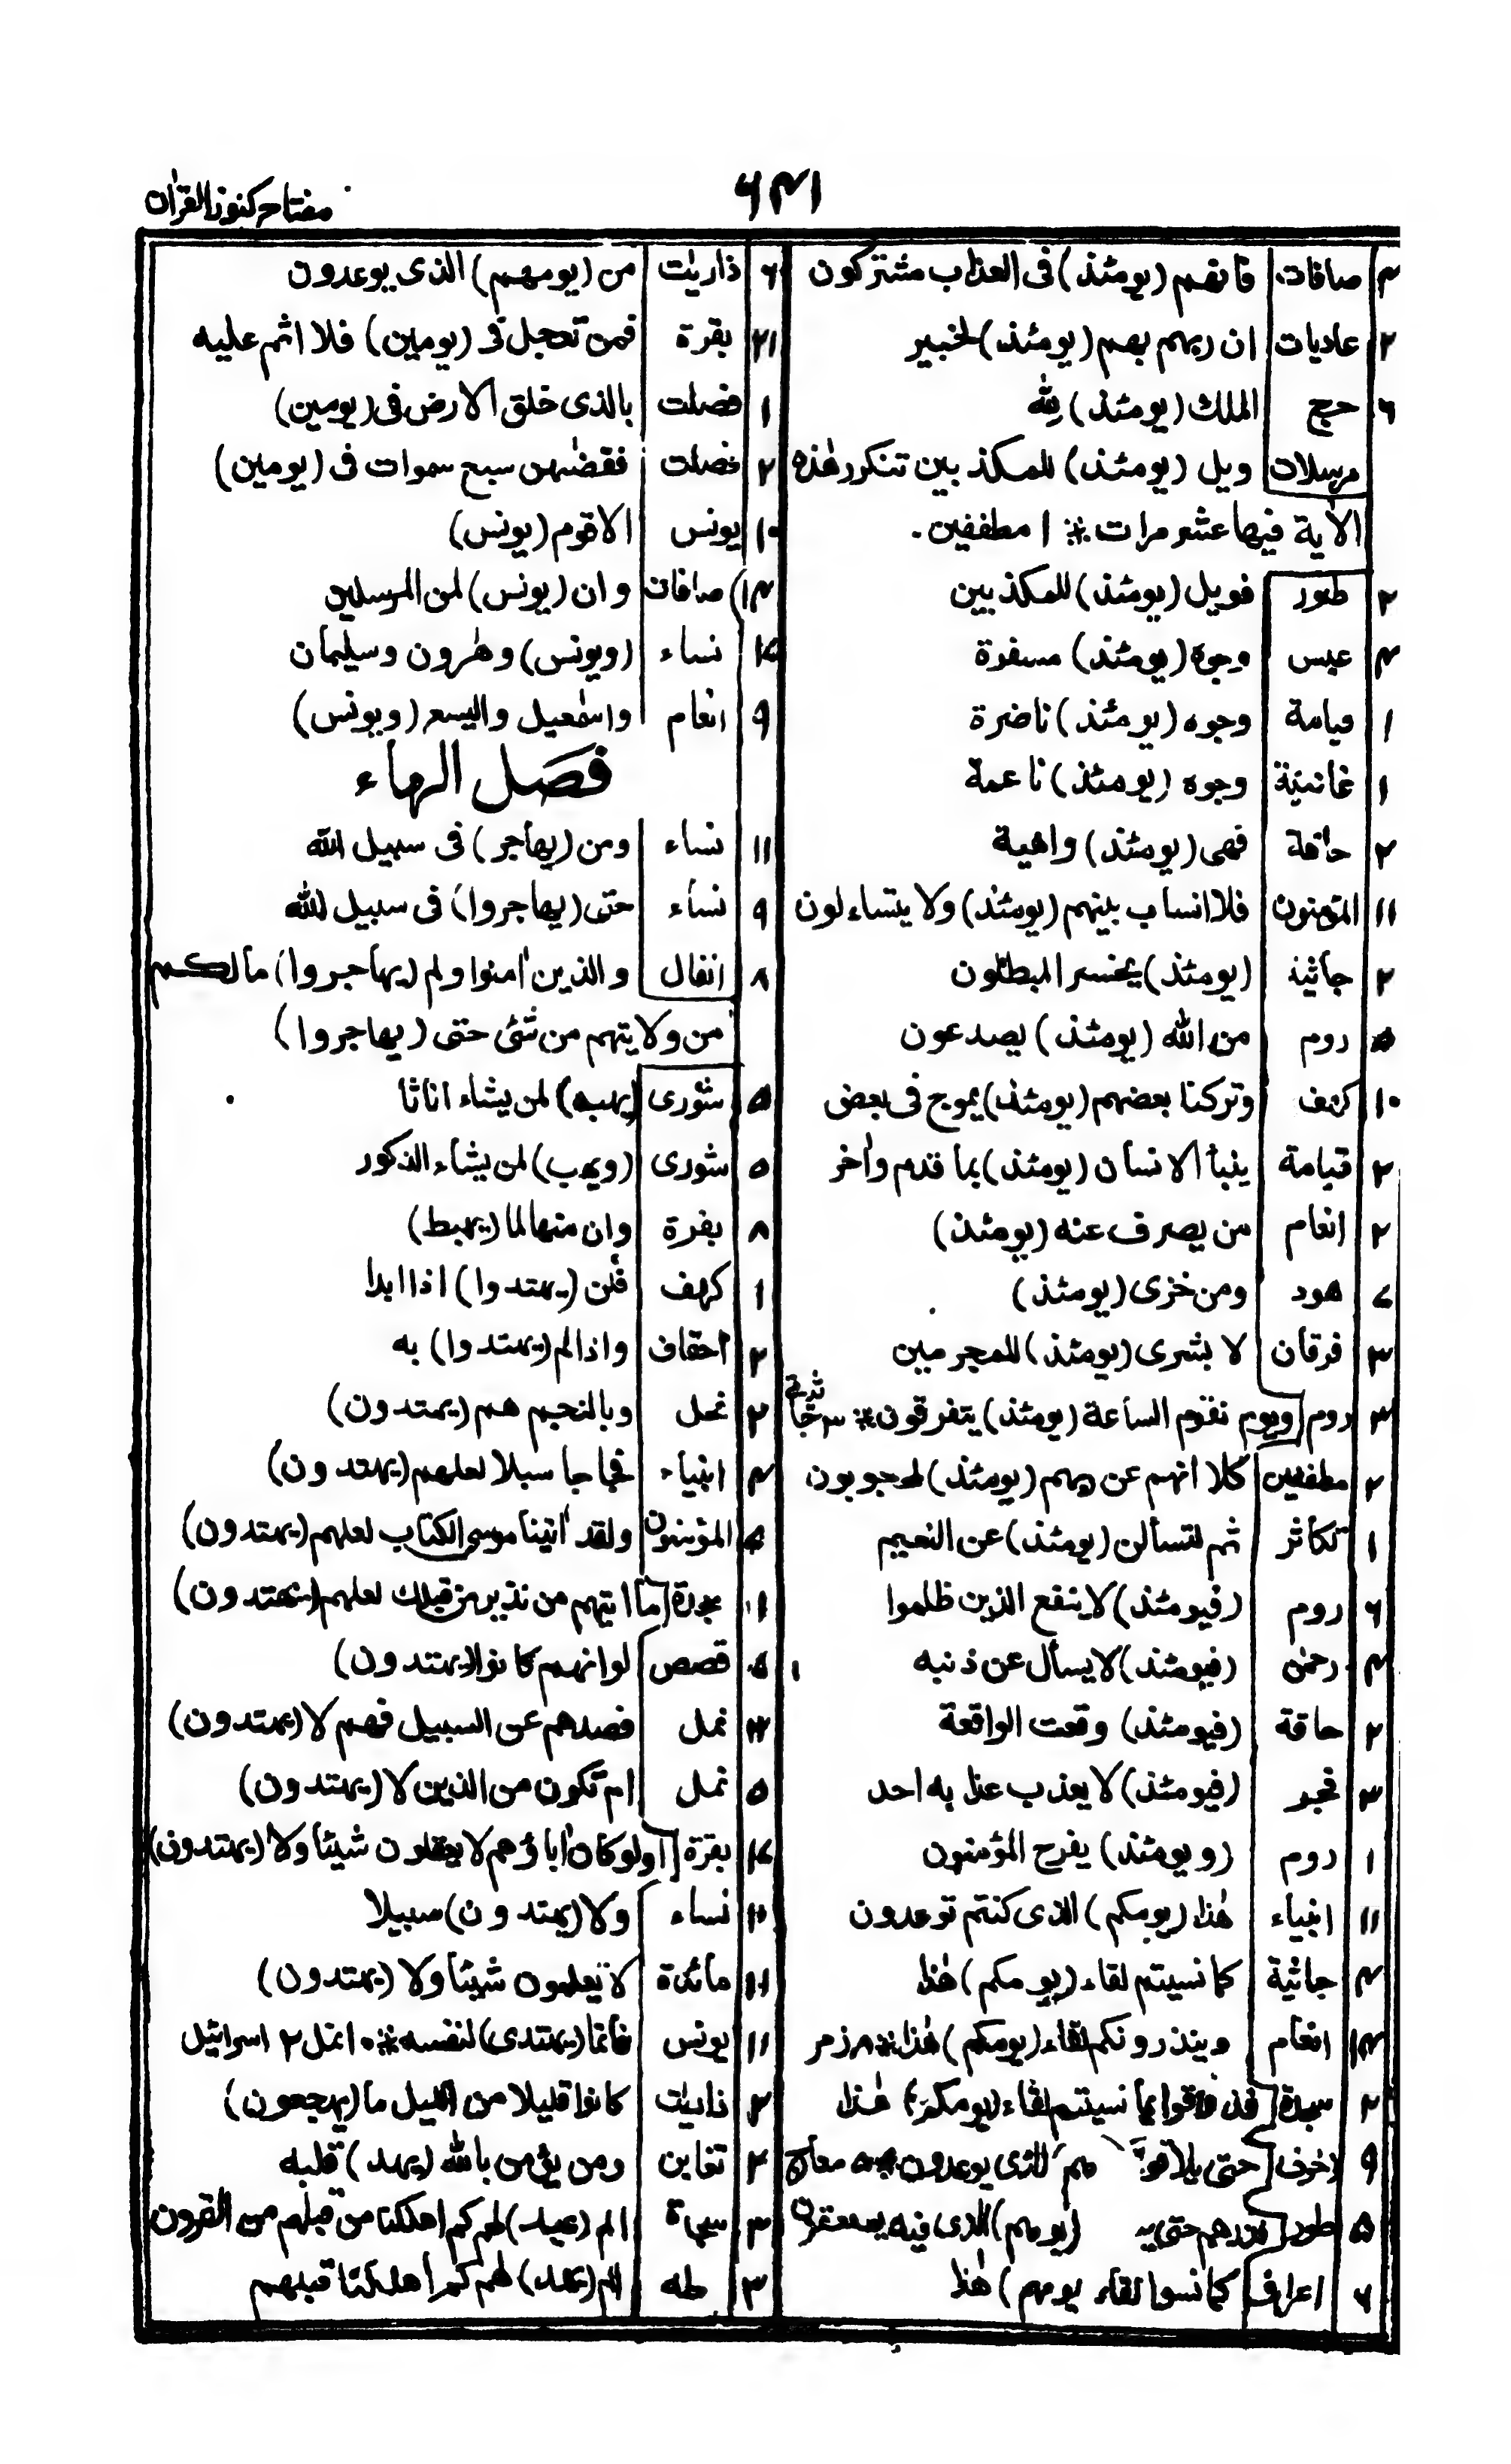 مفتاح كنوز القرآن
۶۴۱
۴ صافات فانهم (يومئذ) فى العذاب مشتركون
۲ عاديات ان ربهم بهم (يومئذ) لخبير
۶ حج الملك (يومئذ) لله
مرسلات ويل (يومئذ) للمكذبين تتكرر هٰذه
الآية فيها عشر مرات * ۱ مطففين
۲ طور فويل (يومئذ) للمكذبين
۴ عبس وجوه (يومئذ) مسفرة
۱ قيامة وجوه (يومئذ) ناضرة
۱ غاشية وجوه (يومئذ) ناعمة
۲ حاقة فهى (يومئذ) واهية
۱۱ المؤمنون فلا انساب بينهم (يومئذ) ولا يتساءلون
۲ جاثية (يومئذ) يخسر المبطلون
۵ روم من الله (يومئذ) يصدعون
۱۰ كهف وتركنا بعضهم (يومئذ) يموج فى بعض
۲ قيامة ينبأ الانسان (يومئذ) بما قدم واخر
۲ انعام من يصرف عنه (يومئذ)
۷ هود ومن خزى (يومئذ)
۳ فرقان لا بشرى (يومئذ) للمجرمين
۳ روم ويوم تقوم الساعة (يومئذ) يتفرقون * ۳ جاثية
۲ مطففين كلا انهم عن ربهم (يومئذ) لمحجوبون
۱ تكاثر ثم لتسألن (يومئذ) عن النعيم
۶ روم (فيومئذ) لا ينفع الذين ظلموا
۴ رحمٰن (فيومئذ) لا يسأل عن ذنبه
۲ حاقة (فيومئذ) وقعت الواقعة
۳ فجر (فيومئذ) لا يعذب عذابه احد
۱ روم (ويومئذ) يفرح المؤمنون
۱۱ انبياء هٰذا (يومكم) الذى كنتم توعدون
۴ جاثية كما نسيتم لقاء (يومكم) هٰذا
۱۴ انعام وينذرونكم لقاء (يومكم) هٰذا * ۸ زمر
۲ سجدة فذوقوا بما نسيتم لقاء (يومكم) هٰذا
۹ زخرف حتى يلاقوا الذى يوعدون معارج
۵ طور حتى (يومهم) الذى فيه يصعقون
۶ اعراف كما نسوا لقاء يومهم) هٰذا
۶ ذاريٰت من (يومهم) الذى يوعدون
۲۱ بقرة فمن تعجل فى (يومين) فلا اثم عليه
۱ فصلت بالذى خلق الارض فى (يومين)
۲ فصلت فقضٰهن سبع سموات فى (يومين)
۱۰ يونس الا قوم (يونس)
۱۴ صافات وان (يونس) لمن المرسلين
نساء (ويونس) وهٰرون وسليمان
۹ انعام واسمٰعيل واليسع (ويونس)
فصل الهاء
۱۱ نساء ومن (يهاجر) فى سبيل الله
۹ نساء حتى (يهاجروا) فى سبيل الله
۸ انفال والذين اٰمنوا ولم (يهاجروا) مالكم
من ولايتهم من شئ حتى (يهاجروا)
۵ شورى (يهب) لمن يشاء اناثا
۵ شورى (ويهب) لمن يشاء الذكور
۸ بقرة وان منها لما (يهبط)
۱ كهف فلن (يهتدوا) اذا ابدا
۲ احقاف واذ لم (يهتدوا) به
۲ نحل وبالنجم هم (يهتدون)
۴ انبياء فجاجا سبلا لعلهم (يهتدون)
المؤمنون ولقد اٰتينا موسى الكتاب لعلهم (يهتدون)
سجدة ما اتيهم من نذير من قبلك لعلهم (يهتدون)
قصص لو انهم كانوا (يهتدون)
نمل فصدهم عن السبيل فهم لا (يهتدون)
۵ نمل ام تكون من الذين لا (يهتدون)
بقرة اولو كان اٰباؤهم لا يعقلون شيئا ولا (يهتدون)
نساء ولا (يهتدون) سبيلا
مائدة لا يعلمون شيئا ولا (يهتدون)
۱۱ يونس فانما (يهتدى) لنفسه * نمل ۲ اسرائيل
ذاريٰت كانوا قليلا من الليل ما (يهجعون)
۲ تغابن ومن يؤمن بالله (يهد) قلبه
۳ سجدة الم (يهد) لهم كم اهلكنا من قبلهم من القرون
۳ طه الم (يهد) لهم كم اهلكنا قبلهم